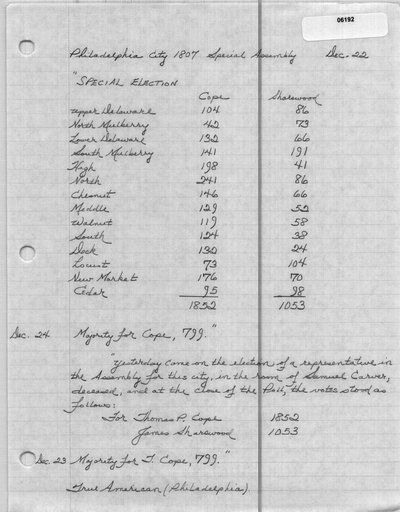 06192
Philadelphia City 1807 Special Assembly Dec. 22
"SPECIAL ELECTION
Cope Sharswood
Upper Delaware 104 86
North Mulberry 42 73
Lower Delaware 132 66
South Mulberry 141 191
High 198 41
North 241 86
Chesnut 146 66
Middle 129 52
Walnut 119 58
South 124 38
Dock 132 24
Locust 73 104
New Market 176 70
Cedar 95 98
1852 1053
Dec. 24 Majority for Cope, 799."
"Yesterday came on the election of a representative in
the Assembly for this city, in the room of Samuel Carver,
deceased, and at the close of the Poll, the votes stood as
follows:
For Thomas P. Cope 1852
James Sharswood 1053
Dec. 23 Majority for T. Cope, 799."
True American (Philadelphia).